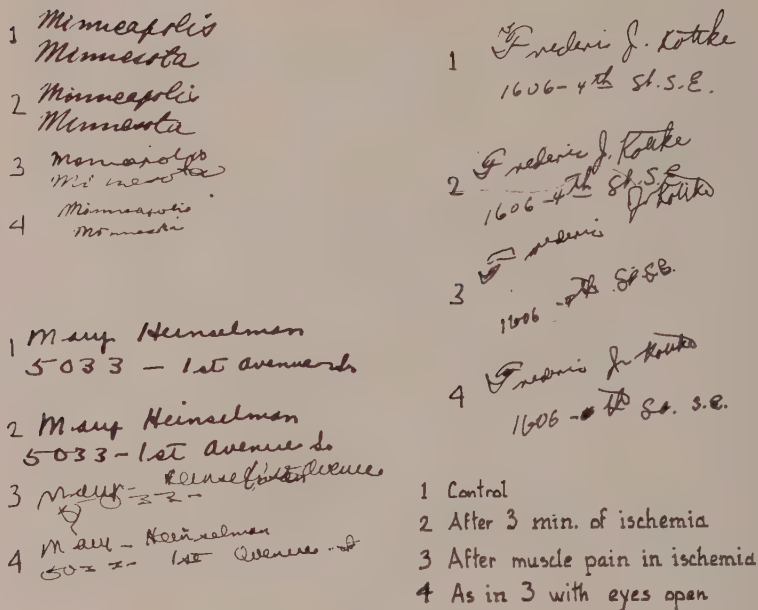 1 Minneapolis
Minnesota
2 Minneapolis
Minnesota
3
4 Minneapolis
1 Mary Heinselman
5033 - 1st Avenue So
2 Mary Heinselman
5033 - 1st Avenue So
3 Mary - Avenue
4 Mary - Heinselman
1st Avenue
1 Frederic J. Kottke
1606 - 4th St. S.E.
2 Frederic J. Kottke
1606 - 4th St. S.E.
3 Frederic J. Kottke
1606 - th St. S.E.
4 Frederic J. Kottke
1606 - th St. S.E.
1 Control
2 After 3 min. of ischemia
3 After muscle pain in ischemia
4 As in 3 with eyes open